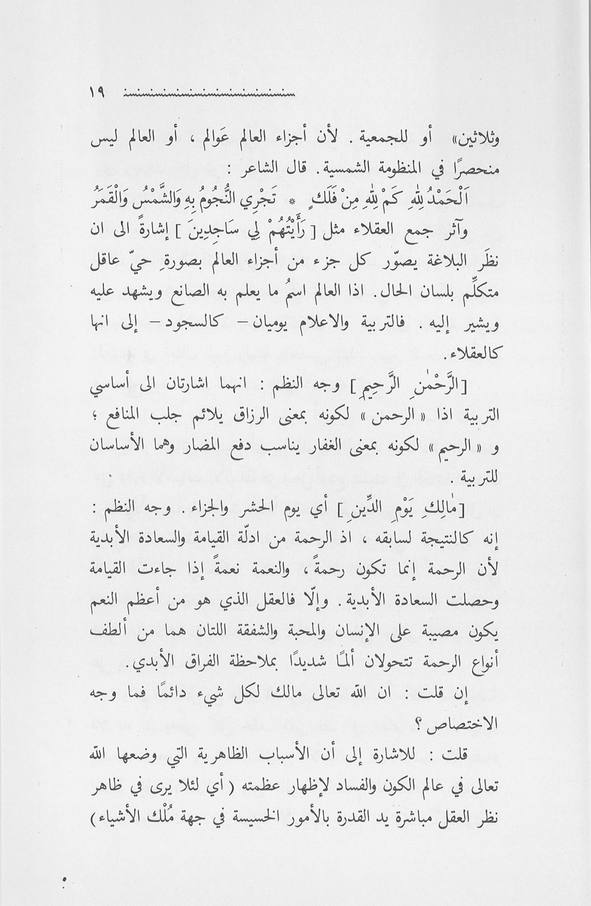 ١٩
وثلاثين» أو للجمعية . لأن أجزاء العالم عَوالم ، أو العالم ليس
منحصرًا في المنظومة الشمسية . قال الشاعر :
اَلْحَمْدُ لِلّٰهِ كَمْ لِلّٰهِ مِنْ فَلَكٍ * تَجْرِي النُّجُومُ بِهِ وَالشَّمْسُ وَالْقَمَرُ
وآثر جمع العقلاء مثل [ رَأَيْتُهُمْ لِي سَاجِدِينَ ] إشارةً الى ان
نظَر البلاغة يصوّر كل جزء من أجزاء العالم بصورةِ حيّ عاقل
متكلِّم بلسان الحال. اذا العالم اسمُ ما يعلم به الصانع ويشهد عليه
ويشير إليه . فالتربية والاعلام يوميان – كالسجود – إلى انها
كالعقلاء.
[الرَّحْمٰنِ الرَّحِيمِ ] وجه النظم : انهما اشارتان الى أساسي
التربية اذا « الرحمن » لكونه بمعنى الرزاق يلائم جلب المنافع ؛
و « الرحيم » لكونه بمعنى الغفار يناسب دفع المضار وهما الأساسان
للتربية .
[مٰالِكِ يَوْمِ الدِّينِ ] أي يوم الحشر والجزاء . وجه النظم :
إنه كالنتيجة لسابقه ، اذ الرحمة من ادلّة القيامة والسعادة الأبدية
لأن الرحمة إنما تكون رحمةً ، والنعمة نعمةً إذا جاءت القيامة
وحصلت السعادة الأبدية . وإلّا فالعقل الذي هو من أعظم النعم
يكون مصيبة على الإنسان والمحبة والشفقة اللتان هما من ألطف
أنواع الرحمة تتحولان ألمًا شديدًا بملاحظة الفراق الأبدي.
إن قلت : ان الله تعالى مالك لكل شيء دائمًا فما وجه
الاختصاص ؟
قلت : للاشارة إلى أن الأسباب الظاهرية التي وضعها الله
تعالى في عالم الكون والفساد لإظهار عظمته ( أي لئلا يرى في ظاهر
نظر العقل مباشرة يد القدرة بالأمور الخسيسة في جهة مُلْك الأشياء)